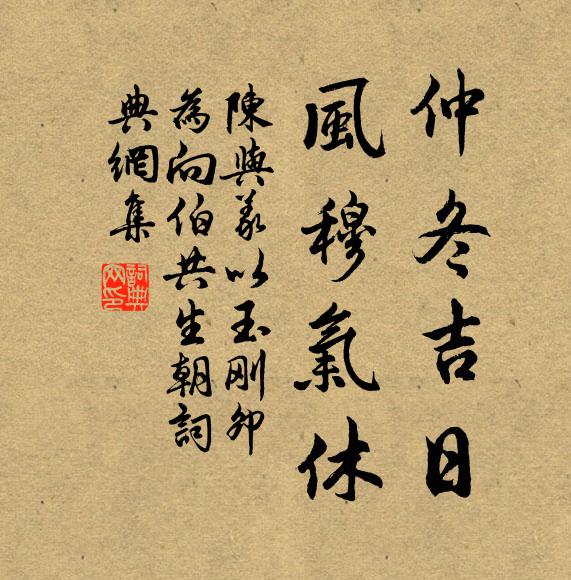 仲冬吉日
風穆氣休
陳與義以玉剛卯
為向伯共生朝詞
典網集
詞典
網印